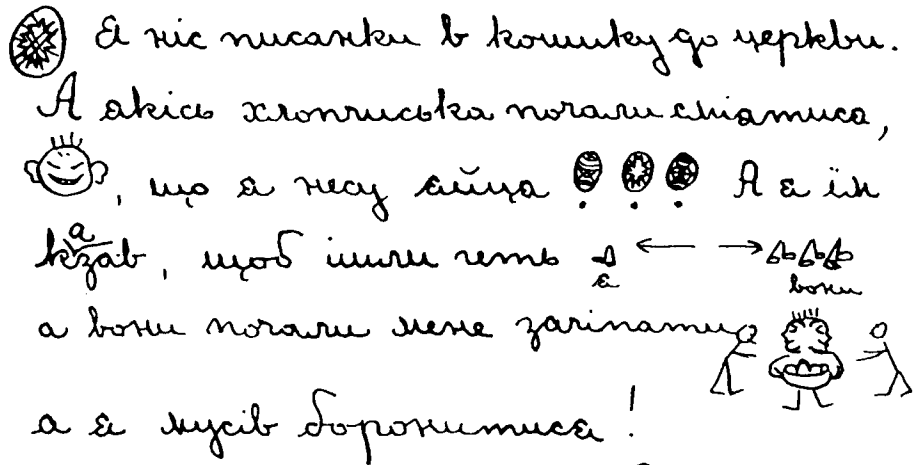 Я ніс писанки в кошику до церкви.
А якісь хлопчиська почали сміятися,
, що я несу яйця ! ! ! А я їм
казав, щоб ішли геть
я вони
а вони почали мене зачіпати
а я мусів боронитися!